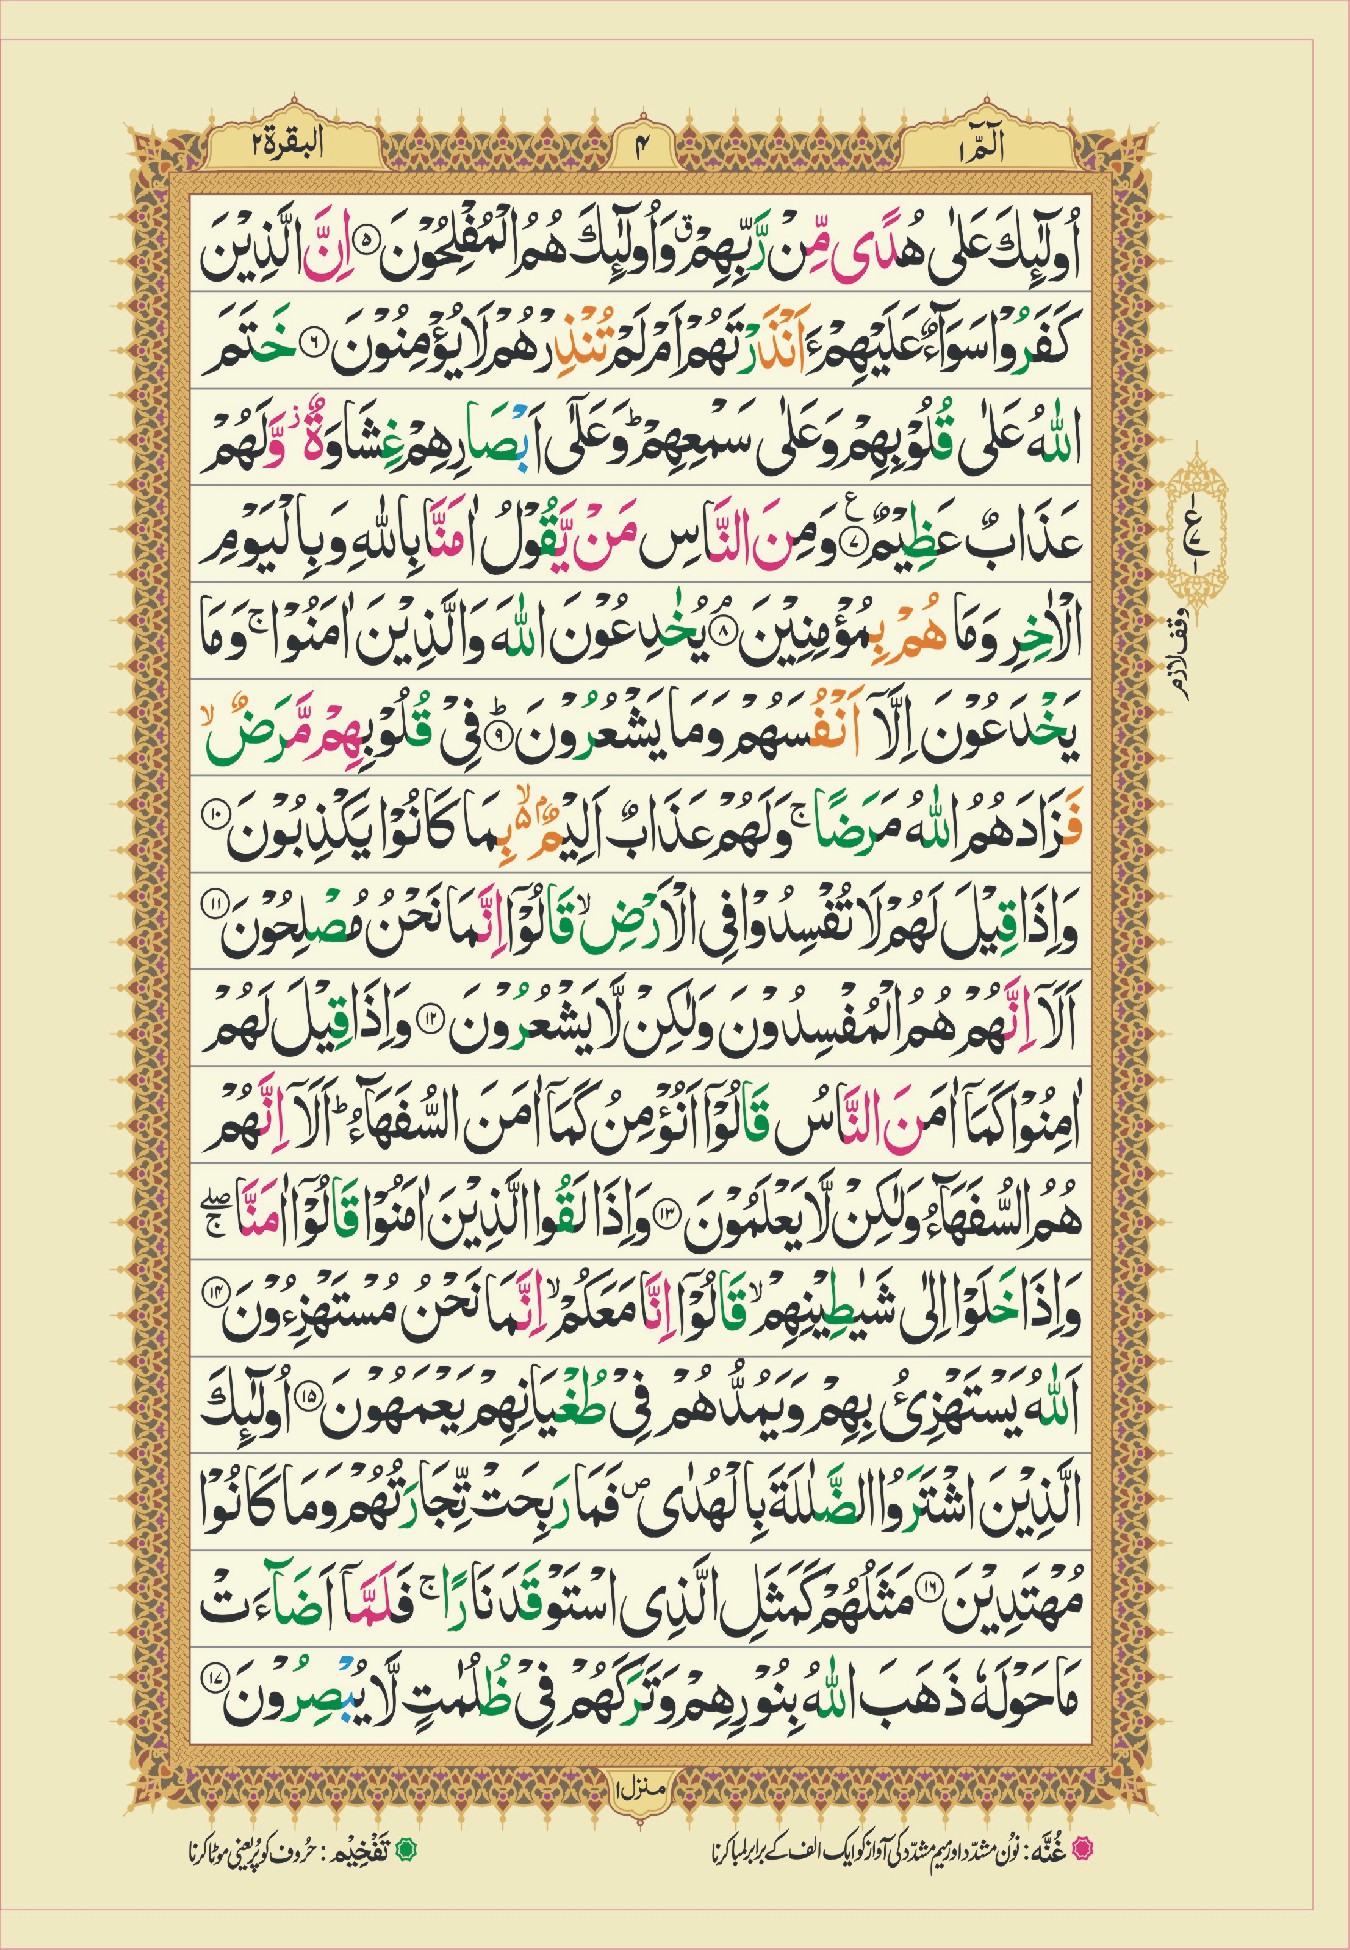 الٓمّٓ ١
۴
البقرة ٢
اُولٰٓئِكَ عَلٰی هُدًی مِّنْ رَّبِّهِمْ ۗ وَاُولٰٓئِكَ هُمُ الْمُفْلِحُوْنَ ۝۵ اِنَّ الَّذِیْنَ
كَفَرُوْا سَوَآءٌ عَلَیْهِمْ ءَاَنْذَرْتَهُمْ اَمْ لَمْ تُنْذِرْهُمْ لَا یُؤْمِنُوْنَ ۝۶ خَتَمَ
اللّٰهُ عَلٰی قُلُوْبِهِمْ وَعَلٰی سَمْعِهِمْ ؕ وَعَلٰۤی اَبْصَارِهِمْ غِشَاوَةٌ ؗ وَّلَهُمْ
عَذَابٌ عَظِیْمٌ ۝۷ ع وَمِنَ النَّاسِ مَنْ یَّقُوْلُ اٰمَنَّا بِاللّٰهِ وَبِالْیَوْمِ
ع
٧
الْاٰخِرِ وَمَا هُمْ بِمُؤْمِنِیْنَ ۝۸ۘ یُخٰدِعُوْنَ اللّٰهَ وَالَّذِیْنَ اٰمَنُوْا ۚ وَمَا
وقف لازم
یَخْدَعُوْنَ اِلَّاۤ اَنْفُسَهُمْ وَمَا یَشْعُرُوْنَ ۝۹ؕ فِیْ قُلُوْبِهِمْ مَّرَضٌ ۙ
فَزَادَهُمُ اللّٰهُ مَرَضًا ۚ وَلَهُمْ عَذَابٌ اَلِیْمٌۢ ۬ۙ۵ بِمَا كَانُوْا یَكْذِبُوْنَ ۝۱۰
وَاِذَا قِیْلَ لَهُمْ لَا تُفْسِدُوْا فِی الْاَرْضِ ۙ قَالُوْۤا اِنَّمَا نَحْنُ مُصْلِحُوْنَ ۝۱۱
اَلَاۤ اِنَّهُمْ هُمُ الْمُفْسِدُوْنَ وَلٰكِنْ لَّا یَشْعُرُوْنَ ۝۱۲ وَاِذَا قِیْلَ لَهُمْ
اٰمِنُوْا كَمَاۤ اٰمَنَ النَّاسُ قَالُوْۤا اَنُؤْمِنُ كَمَاۤ اٰمَنَ السُّفَهَآءُ ؕ اَلَاۤ اِنَّهُمْ
هُمُ السُّفَهَآءُ وَلٰكِنْ لَّا یَعْلَمُوْنَ ۝۱۳ وَاِذَا لَقُوا الَّذِیْنَ اٰمَنُوْا قَالُوْۤا اٰمَنَّا ۚۖ
وَاِذَا خَلَوْا اِلٰی شَیٰطِیْنِهِمْ ۙ قَالُوْۤا اِنَّا مَعَكُمْ ۙ اِنَّمَا نَحْنُ مُسْتَهْزِءُوْنَ ۝۱۴
اَللّٰهُ یَسْتَهْزِئُ بِهِمْ وَیَمُدُّهُمْ فِیْ طُغْیَانِهِمْ یَعْمَهُوْنَ ۝۱۵ اُولٰٓئِكَ
الَّذِیْنَ اشْتَرَوُا الضَّلٰلَةَ بِالْهُدٰی ۪ فَمَا رَبِحَتْ تِّجَارَتُهُمْ وَمَا كَانُوْا
مُهْتَدِیْنَ ۝۱۶ مَثَلُهُمْ كَمَثَلِ الَّذِی اسْتَوْقَدَ نَارًا ۚ فَلَمَّاۤ اَضَآءَتْ
مَا حَوْلَهٗ ذَهَبَ اللّٰهُ بِنُوْرِهِمْ وَتَرَكَهُمْ فِیْ ظُلُمٰتٍ لَّا یُبْصِرُوْنَ ۝۱۷
منزل ١
غُنَّه: نُون مشدّد اور میم مشدّد کی آواز کو ایک الف کے برابر لمبا کرنا
تَفْخِیْم: حُروف کو پُر یعنی موٹا کرنا